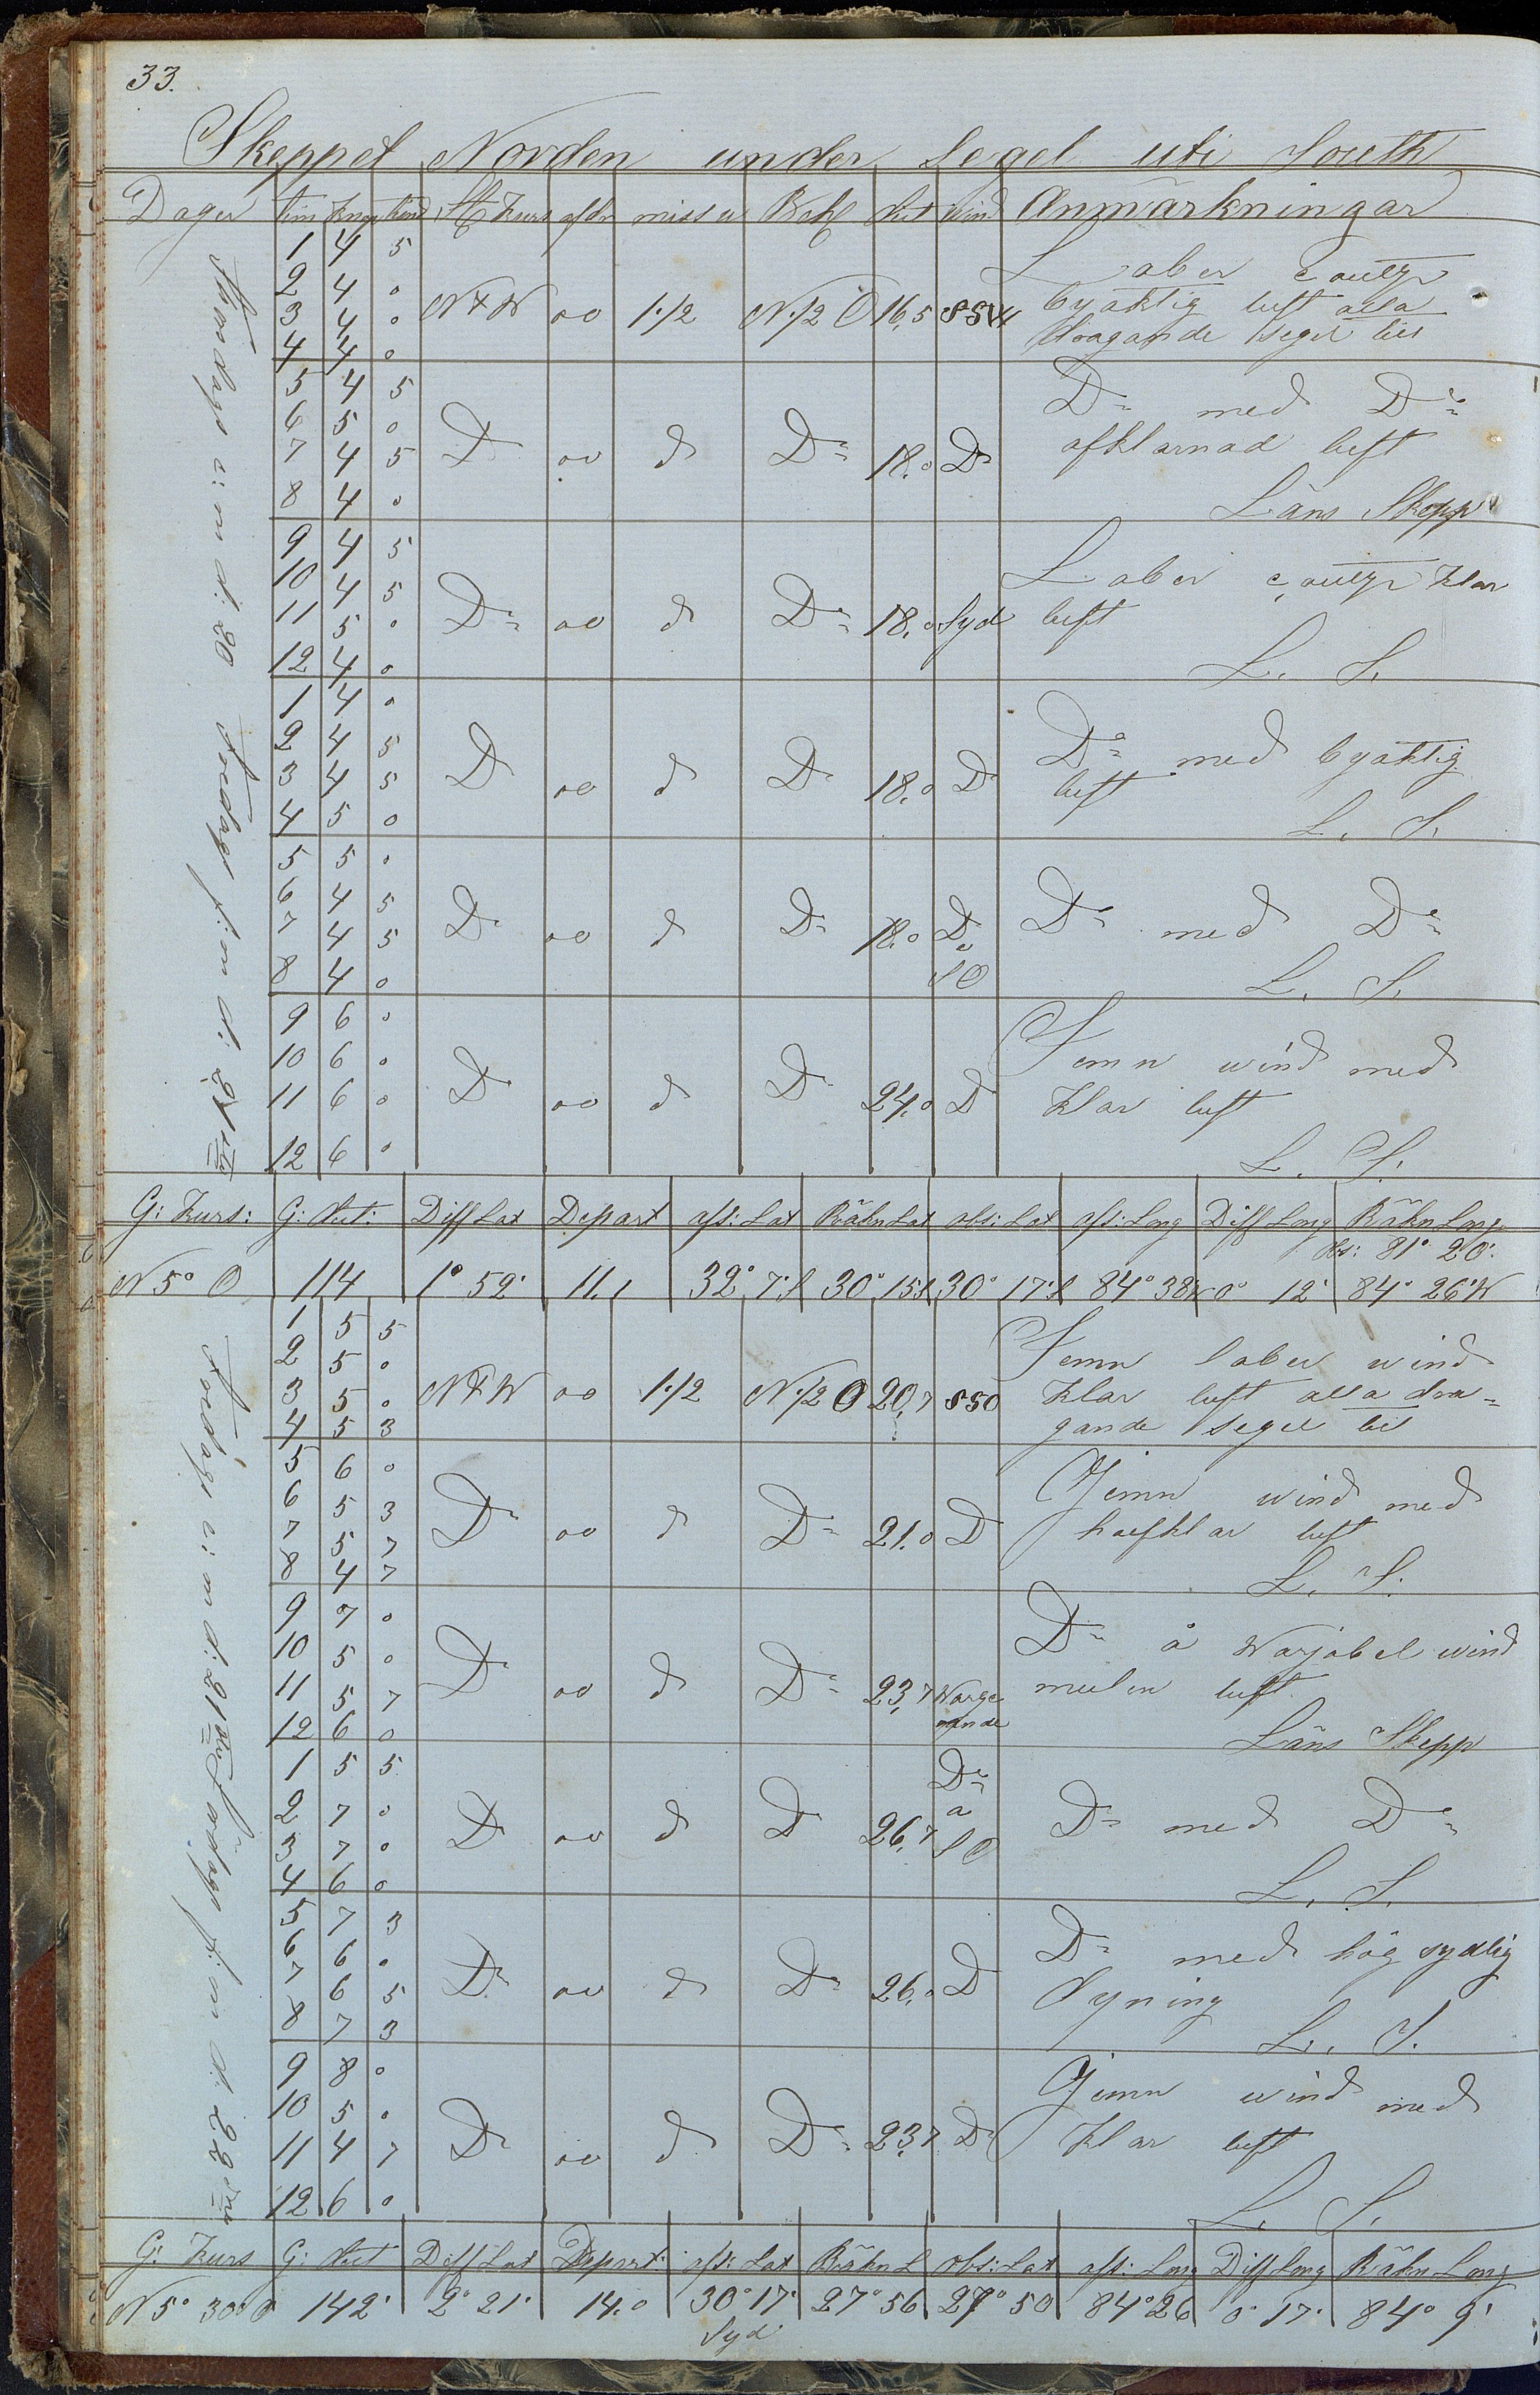 33.
Skeppet Norden under Segel uti South
Dagar tim knop St Kurs afdr miss w Beh Dist Wind Anmärkningar
Thorsdags e: m d: 20
1 4 5
2 4 0
3 4 0
4 4 0
N t W 00 1./2 N./2 O 16,5 SSW
Laber coultje
byaktig luft alla
dragande segel till
5 4 5
6 5 0
7 4 5
8 4 0
D 00 d Do 18.0 Do
Do med Do
afklarnad luft
Läns Skepp
9 4 5
10 4 5
11 5 0
12 4 0
Do 00 d Do 18.0 Syd
Laber coultje klar
luft
L. S.
Fredags f: m d: 21sta
1 4 0
2 4 5
3 4 5
4 5 0
D 00 d D 18.0 D
Do med byaktig
luft
L. S.
5 5 0
6 4 5
7 4 5
8 4 0
Do 00 d Do 18.0 Do
SO
Do med Do
L. S.
9 6 0
10 6 0
11 6 0
12 6 0
D 00 d D 24.0 D
Jemn wind med
klar luft
L. S.
G: Kurs: G: Dist: Diff Lat Depart aff: Lat Räkn Lat obs: Lat aff: Long Diff Long Räkn Long
Obs: 81° 20'
N 5° O 114 1° 52' 11,1 32° 7' S 30° 15 S 30° 17' S 84° 38 W 0° 12' 84° 26' W
Fredags e: m d: 21sta
1 5 5
2 5 0
3 5 0
4 5 3
N t W 00 1./2 N./2 O 20,7 SSO
Jemn laber wind
klar luft alla dra=
gande segel till
5 6 0
6 5 3
7 5 7
8 4 7
Do 00 d Do 21.0 D
Jemn wind med
halfklar luft
L. S.
9 7 0
10 5 0
11 5 7
12 6 0
Do 00 d Do 23,7
Do å Warjabel wind
mulen luft
Läns Skepp
Lördags f: m d. 22dra
1 5 5
2 7 0
3 7 0
4 6 0
D 00 d D 26,7
Do
a
SO
Do med Do
L. S.
5 7 3
6 6 0
7 6 5
8 7 3
Do 00 d Do 26.0 D
Do med hög sydlig
Dyning
L. S.
9 8 0
10 5 0
11 4 7
12 6 0
Do 00 d Do 23,7 D
Jemn wind med
klar luft
L. S.
G: Kurs G: Dist Diff Lat Depart: aff: Lat Räkn L obs: Lat aff: Long Diff Long Räkn Long
N 5° 30' O 142' 2° 21' 14.0 30° 17' 27° 56 27° 50 84° 26 0° 17' 84° 9'
Syd